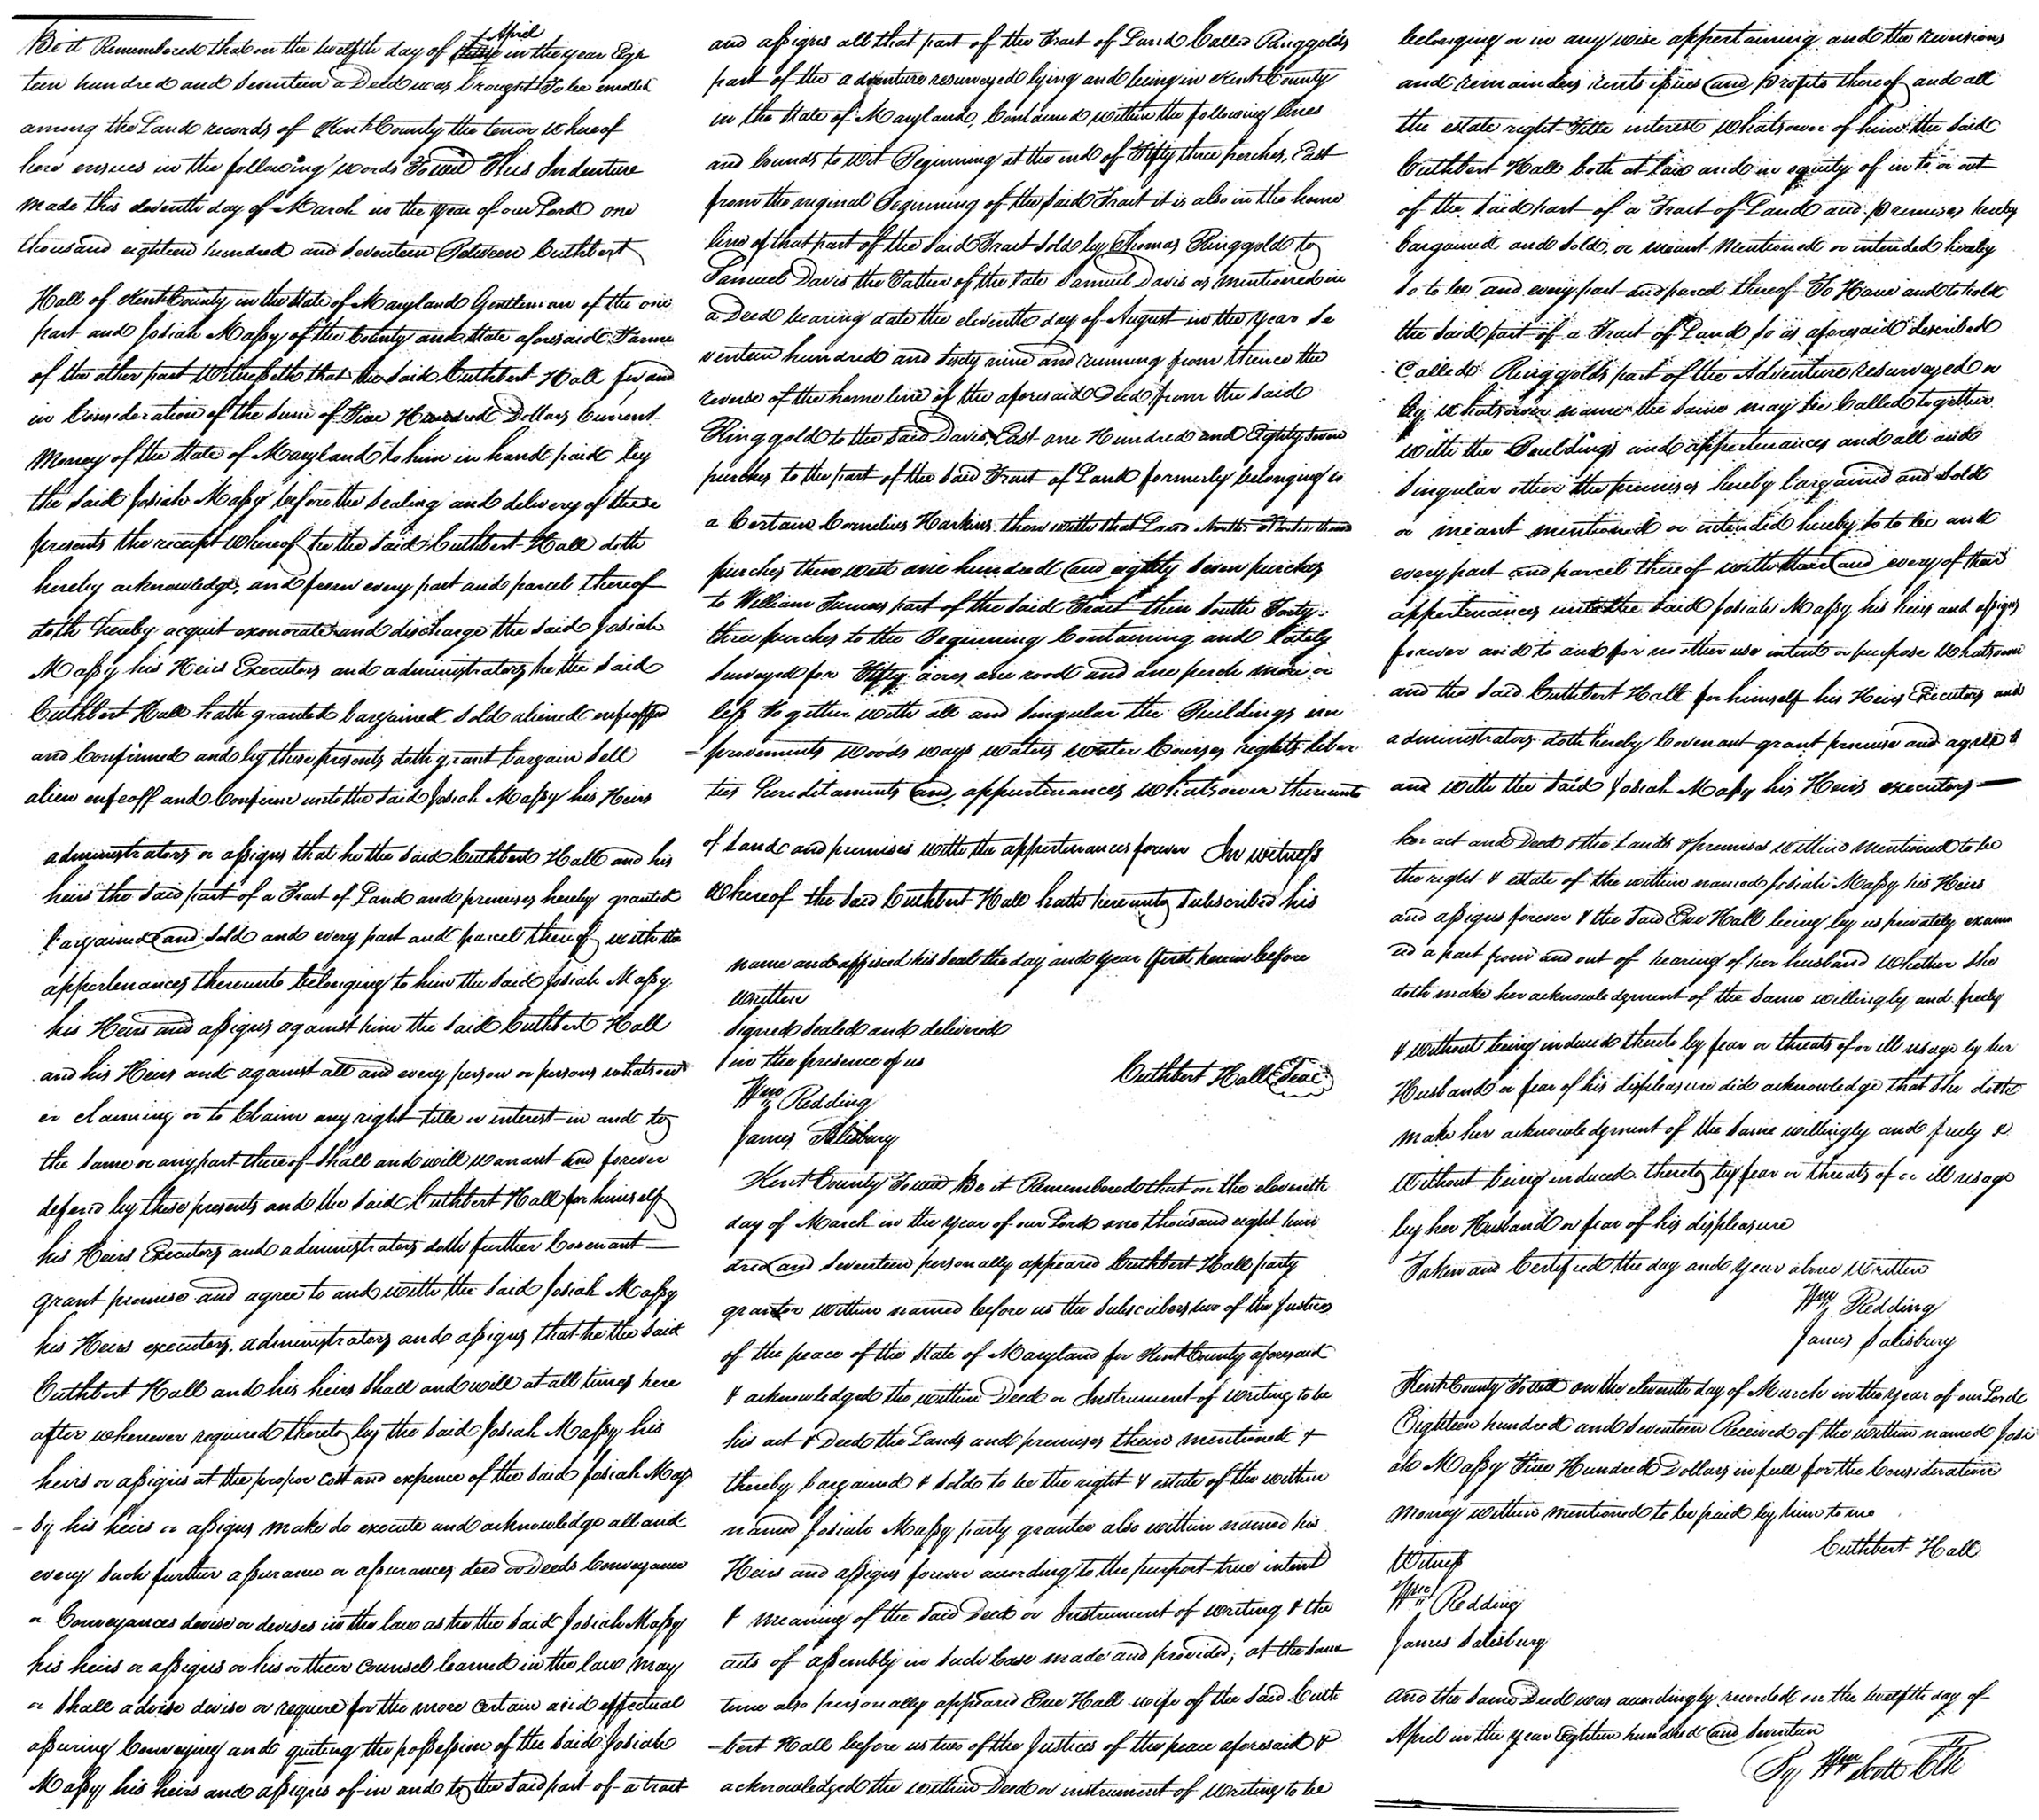 Be it Remembered that on the twelfth day of April in the year Eigh
teen hundred and Seventeen a Deed was brought To be enrolled
among the Land records of Kent County the tenor whereof
here ensues in the following words Towit This Indenture
made this eleventh day of March in the year of our Lord one
thousand eighteen hundred and seventeen Between Cuthbert
Hall of Kent County in the State of Maryland Gentleman of the one
part and Josiah Massy of the County and State aforesaid Farmer
of the other part Witnesseth that the Said Cuthbert Hall for and
in Consideration of the Sum of Five Hundred Dollars Current
Money of the State of Maryland to him in hand paid by
the Said Josiah Massy before the Sealing and delivery of these
presents the receipt whereof he the Said Cuthbert Hall doth
hereby acknowledge, and from every part and parcel thereof
doth hereby acquit exonorate and discharge the Said Josiah
Massy his Heirs Executors and administrators he the Said
Cuthbert Hall hath granted bargained Sold aliened enfeoffed
and Confirmed and by these presents doth grant bargain Sell
alien enfeoff and Confirm unto the Said Josiah Massy his Heirs
and assigns all that part of the Tract of Land Called Ringgolds
part of the adventure resurveyed lying and being in Kent County
in the State of Maryland, Contained within the following lines
and bounds to wit Beginning at the end of Fifty three perches, East
from the original Beginning of the Said Tract it is also in the home
line of that part of the Said Tract Sold by Thomas Ringgold to
Samuel Davis the Father of the late Samuel Davis as mentioned in
a Deed bearing date the eleventh day of August in the year Se
venteen hundred and Sixty nine and running from thence the
reverse of the home line of the aforesaid Deed from the Said
Ringgold to the Said Davis East one Hundred and Eighty Seven
perches to the part of the Said Tract of Land formerly belonging to
a Certain Cornelius Harkins then with that Land North
perches then west one hundred and eighty Seven perches
to William Turners part of the Said Tract then South Forty
three perches to the Beginning Containing and lately
Surveyed for Fifty acres one rood and one perch more or
less Together with all and Singular the Buildings im
=provements woods ways waters water Courses rights liber
ties hereditaments and appurtenances whatsoever thereunto
belonging or in any wise appertaining and the revisions
and remainders rents issues and profits thereof and all
the estate right Title interest whatsover of him the Said
Cuthbert Hall both at Law and in equity of in to or out
of the Said part of a Tract of Land and premises hereby
bargained and Sold, or meant mentioned or intended hereby
So to be and every part and parcel thereof To Have and to hold
the Said part of a Tract of Land So as aforesaid described
Called Ringgolds part of the Adventure resurvayed or
by whatsoever name the Same may be Called together
with the Buildings and appertenances and all and
Singular other the premises hereby bargained and Sold
or meant mentioned or intended hereby to to be and
every part and parcel thereof with their and every of their
appertenances unto the Said Josiah Massy his heirs and assigns
forever and to and for no other use intent or purpose whatsoever
and the Said Cuthbert Hall for himself his Heirs Executors and
administrators doth hereby Covenant grant promise and agree to
and with the Said Josiah Massy his Heirs executors
administrators or assigns that he the Said Cuthbert Hall and his
heirs the Said part of a Tract of Land and premises hereby granted
bargained and Sold and every part and parcel thereof with the
appertenances thereunto belonging to him the Said Josiah Massy
his Heirs and assigns against him the Said Cuthbert Hall
and his Heirs and against all and every person or persons whatsoev
er claiming or to Claim any right title or interest in and to
the Same or any part thereof Shall and will warrant and forever
defend by these presents and the Said Cuthbert Hall for himself
his Heirs Executors and administrators doth further Covenant
grant promise and agree to and with the Said Josiah Massy
his Heirs executors administrators and assigns that he the Said
Cuthbert Hall and his heirs Shall and will at all times here
after whenever required thereto by the Said Josiah Massy his
heirs or assigns at the proper Cost and expence of the Said Josiah Mas
=sy his heirs or assigns make do execute and acknowledge all and
every Such further assurance or assurances deed or Deeds Conveyance
or Conveyances devise or devises in the law as he the Said Josiah Massy
his heirs or assigns or his or their Counsel learned in the law may
or Shall advise devise or require for the more certain and effectual
assuring Conveying and quiting the possession of the Said Josiah
Massy his heirs and assigns of in and to the Said part of a tract
of Land and premises with the appertenances forever In witness
whereof the Said Cuthbert Hall hath hereunto Subscribed his
name and affixed his Seal the day and year first herein before
written
Signed Sealed and delivered
in the presence of us
Cuthbert Hall Seal
Wm Redding
James Salisbury
Kent County Towit Be it Remembered that on the eleventh
day of March in the year of our Lord one thousand eight hun
dred and Seventeen personally appeared Cuthbert Hall party
grantor within named before us the Subscribers two of the Justices
of the peace of the State of Maryland for Kent County aforesaid
& acknowledged the within Deed or Instrument of writing to be
his act & Deed the Lands and premises therein mentioned &
thereby bargained & Sold to be the right & estate of the within
named Josiah Massy party grantee also within named his
Heirs and assigns forever according to the purport true intent
& meaning of the Said Deed or Instrument of writing & the
acts of assembly in Such Case made and provided; at the Same
time also personally appeared Eve Hall wife of the Said Cuth
=bert Hall before us two of the Justices of the peace aforesaid &
acknowledged the within Deed or instrument of writing to be
her act and Deed & the Lands & premises within mentioned to be
the right & estate of the within named Josiah Massy his Heirs
and assigns forever & the Said Eve Hall being by us privately exami
ned apart from and out of hearing of her husband whether She
doth make her acknowledgment of the Same willingly and freely
& without being induced thereto by fear or threats of or ill usage by her
Husband or fear of his displeasure did acknowledge that She doth
make her acknowledgment of the Same willingly and freely &
without being induced thereto by fear or threats of or ill usage
by her Husband or fear of his displeasure
Taken and Certified the day and year above written
Wm Redding
James Salisbury
Kent County Towit on the eleventh day of March in the year of our Lord
Eighteen hundred and Seventeen Received of the within named Josi
ah Massy Five Hundred Dollars in full for the Consideration
money within mentioned to be paid by him to me
Cuthbert Hall
Witness
Wm Redding
James Salisbury
and the Same Deed was accordingly recorded on the twelfth day of
April in the year Eighteen hundred and Seventeen
By Wm Scott Clk